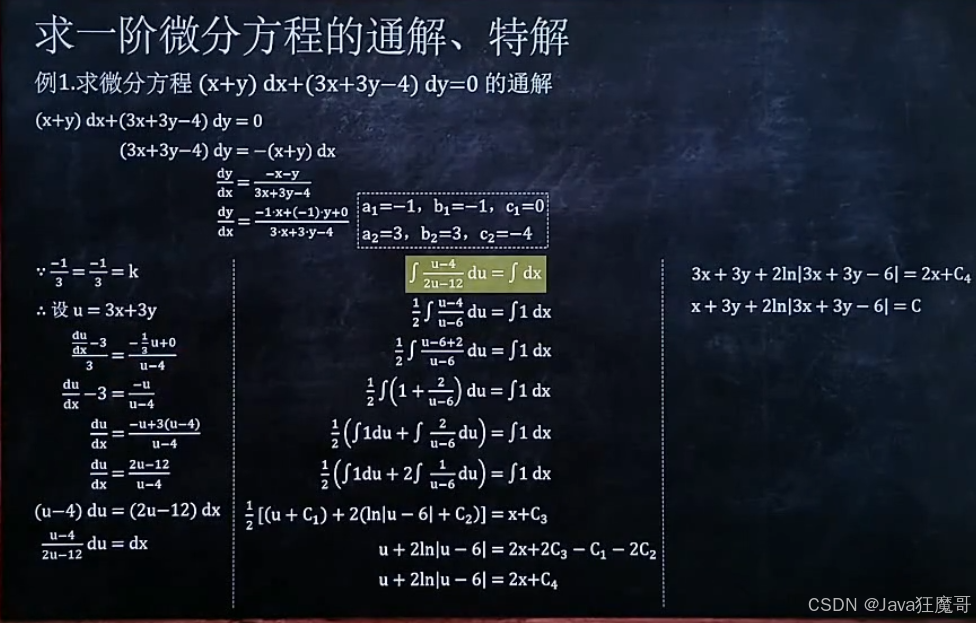 求一阶微分方程的通解、特解
例1.求微分方程 (x+y) dx+(3x+3y−4) dy=0 的通解
(x+y) dx+(3x+3y−4) dy = 0
(3x+3y−4) dy = −(x+y) dx
dy/dx = (−x−y)/(3x+3y−4)
dy/dx = (−1·x+(−1)·y+0)/(3·x+3·y−4)
a₁=−1，b₁=−1，c₁=0
a₂=3，b₂=3，c₂=−4
∵ −1/3 = −1/3 = k
∴ 设 u = 3x+3y
(du/dx −3)/3 = (−1/3 u+0)/(u−4)
du/dx −3 = −u/(u−4)
du/dx = (−u+3(u−4))/(u−4)
du/dx = (2u−12)/(u−4)
(u−4) du = (2u−12) dx
(u−4)/(2u−12) du = dx
∫ (u−4)/(2u−12) du = ∫ dx
1/2 ∫ (u−4)/(u−6) du = ∫1 dx
1/2 ∫ (u−6+2)/(u−6) du = ∫1 dx
1/2 ∫(1 + 2/(u−6)) du = ∫1 dx
1/2 (∫1du + ∫ 2/(u−6) du) = ∫1 dx
1/2 (∫1du + 2∫ 1/(u−6) du) = ∫1 dx
1/2 [(u + C₁) + 2(ln|u − 6| + C₂)] = x+C₃
u + 2ln|u − 6| = 2x+2C₃ − C₁ − 2C₂
u + 2ln|u − 6| = 2x+C₄
3x + 3y + 2ln|3x + 3y − 6| = 2x+C₄
x + 3y + 2ln|3x + 3y − 6| = C
CSDN @Java狂魔哥